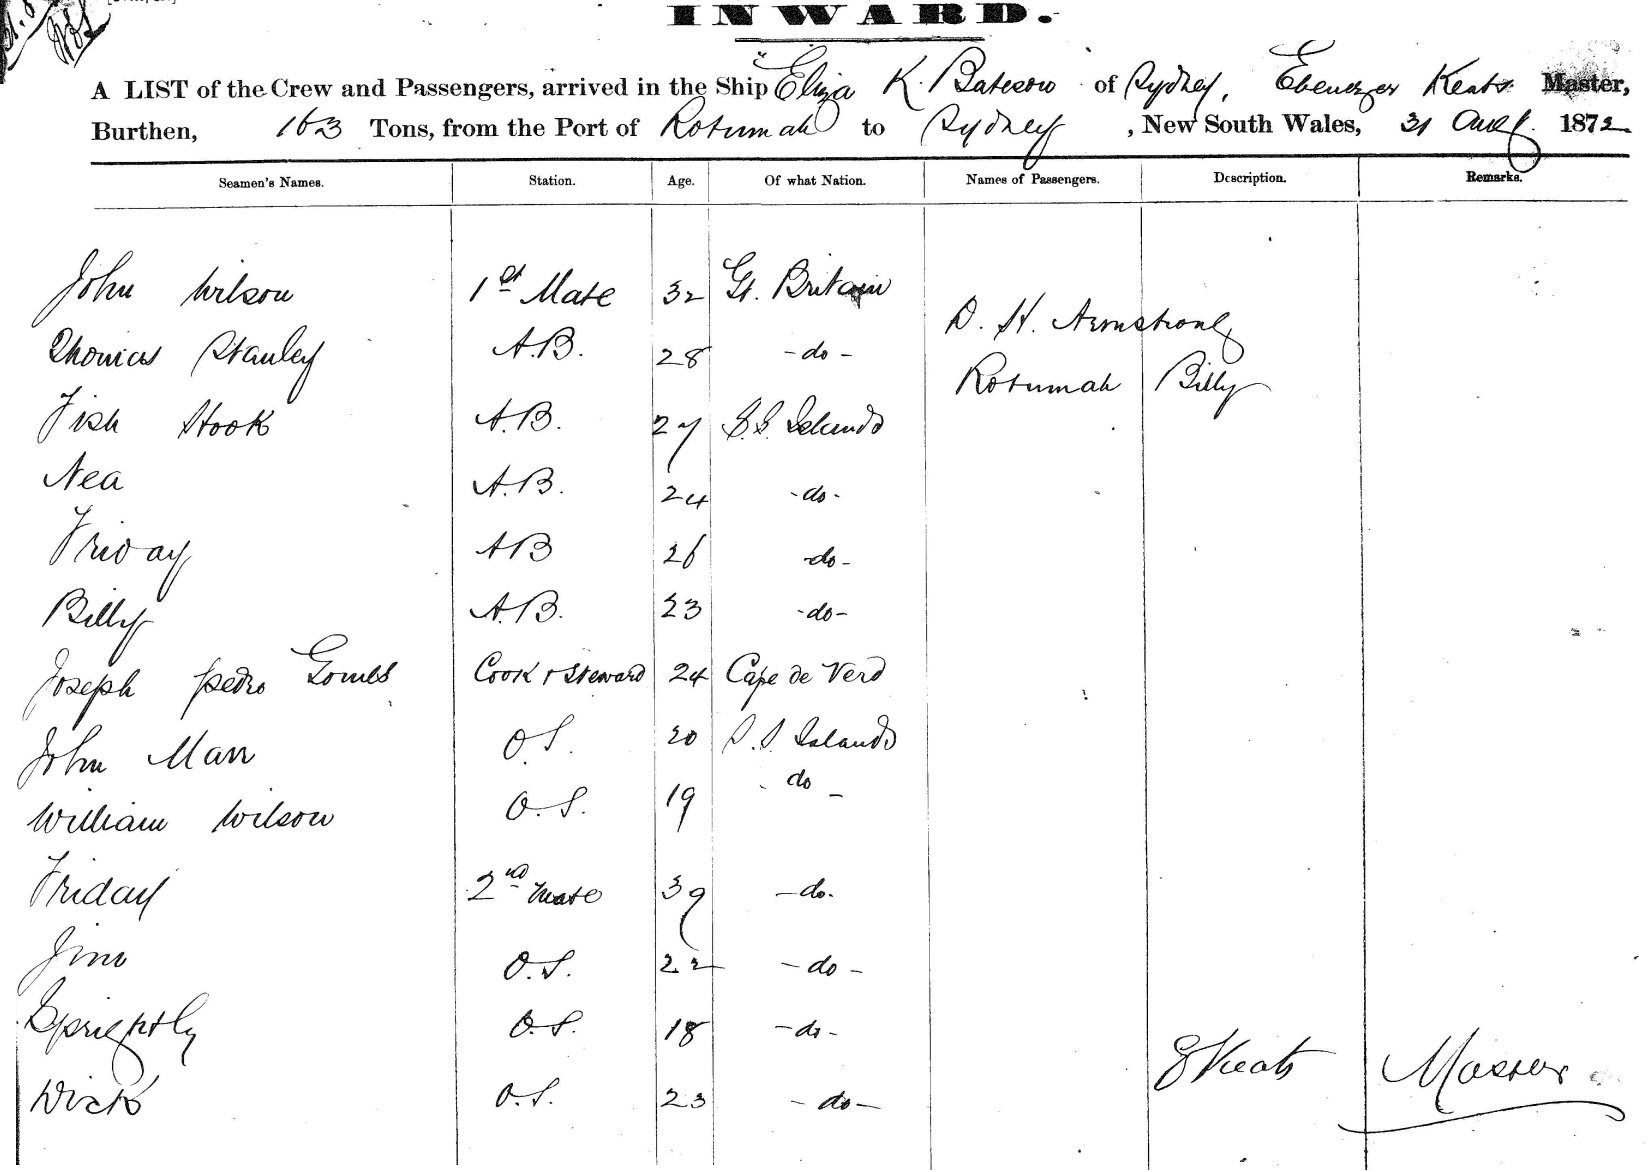 INWARD.
A LIST of the Crew and Passengers, arrived in the Ship "Eliza K. Bateson of Sydney, Ebenezer Keats Master,
Burthen, 163 Tons, from the Port of Rotumah to Sydney, New South Wales, 31 Aug. 1872
Seamen's Names. Station. Age. Of what Nation. Names of Passengers. Description. Remarks.
John Wilson 1st Mate 32 Gt. Britain
D. H. Armstrong
Thomas Stanley A.B. 28 - do -
Rotumah Billy
Fish Hook A.B. 27 S.S. Islands
Nea A.B. 24 - do -
Friday AB 26 - do -
Billy A.B. 23 - do -
Joseph Pedro Gomes Cook & Steward 24 Cape de Verd
John Marr O.S. 20 S.S. Islands
William Wilson O.S. 19 - do -
Friday 2nd Mate 39 - do -
Jim O.S. 22 - do -
Sprightly O.S. 18 - do -
E Keats Master
Dick O.S. 23 - do -